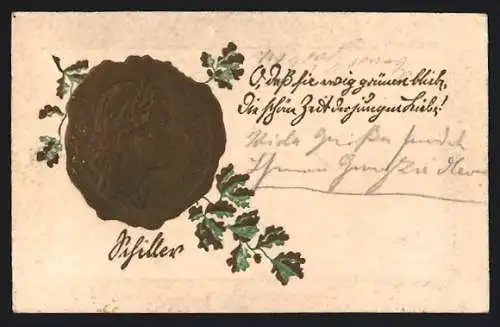 O, daß sie ewig grünen bliebe,
Die schöne Zeit der jungen Liebe!
Viele Grüße sendet
Ihnen
Schiller